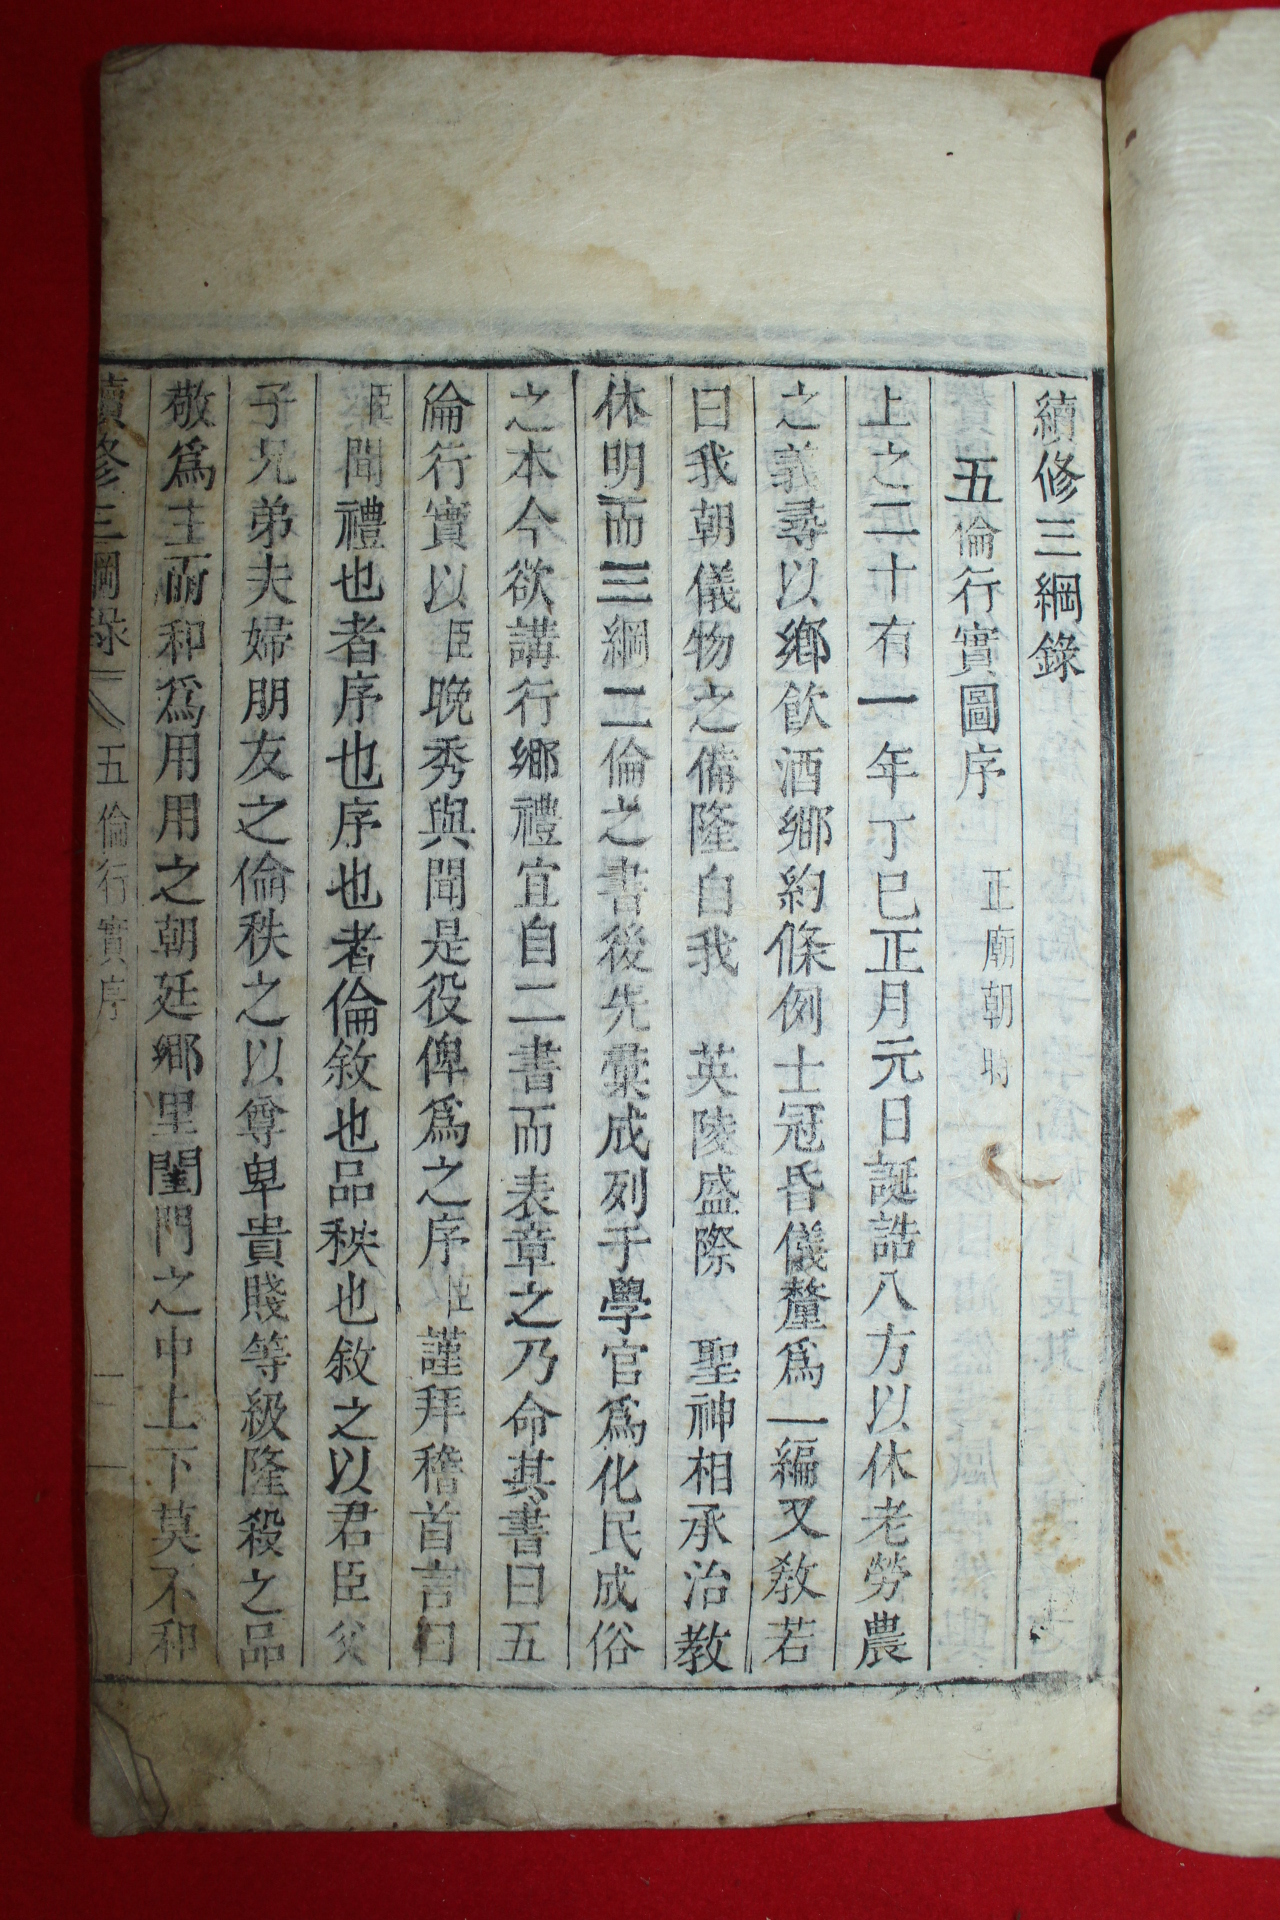 續修三綱錄
五倫行實圖序 正廟朝時
上之二十有一年丁巳正月元日誕誥八方以休老勞農
之義尋以鄉飮酒鄉約條例士冠昏儀釐爲一編又敎若
曰我朝儀物之備隆自我 英陵盛際 聖神相承治教
休明而三綱二倫之書後先彙成列于學官爲化民成俗
之本今欲講行鄉禮宜自二書而表章之乃命其書曰五
倫行實以臣晩秀與聞是役俾爲之序臣謹拜稽首言曰
臣聞禮也者序也序也者倫敘也品秩也敘之以君臣父
子兄弟夫婦朋友之倫秩之以尊卑貴賤等級隆殺之品
敬爲主而和爲用用之朝廷鄉里閨門之中上下莫不和
續修三綱錄 五倫行實序